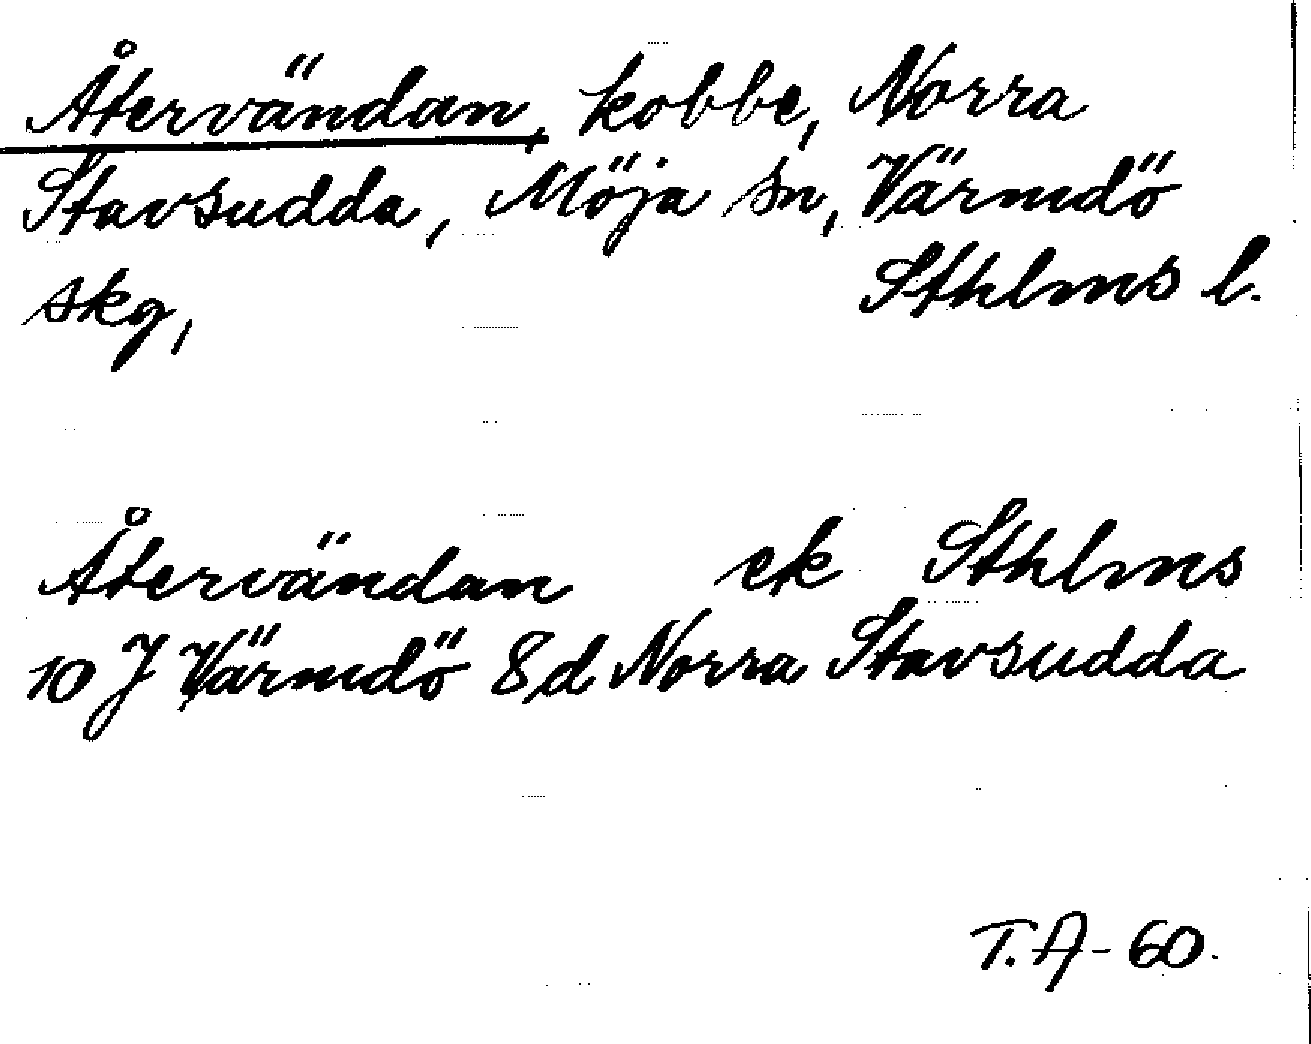 Återvändan, kobbe, Norra
Stavsudda, Möja sn, Värmdö
skg, Sthlms l.
Återvändan ek Sthlms
10 J Värmdö 8d Norra Stavsudda
T.A-60.